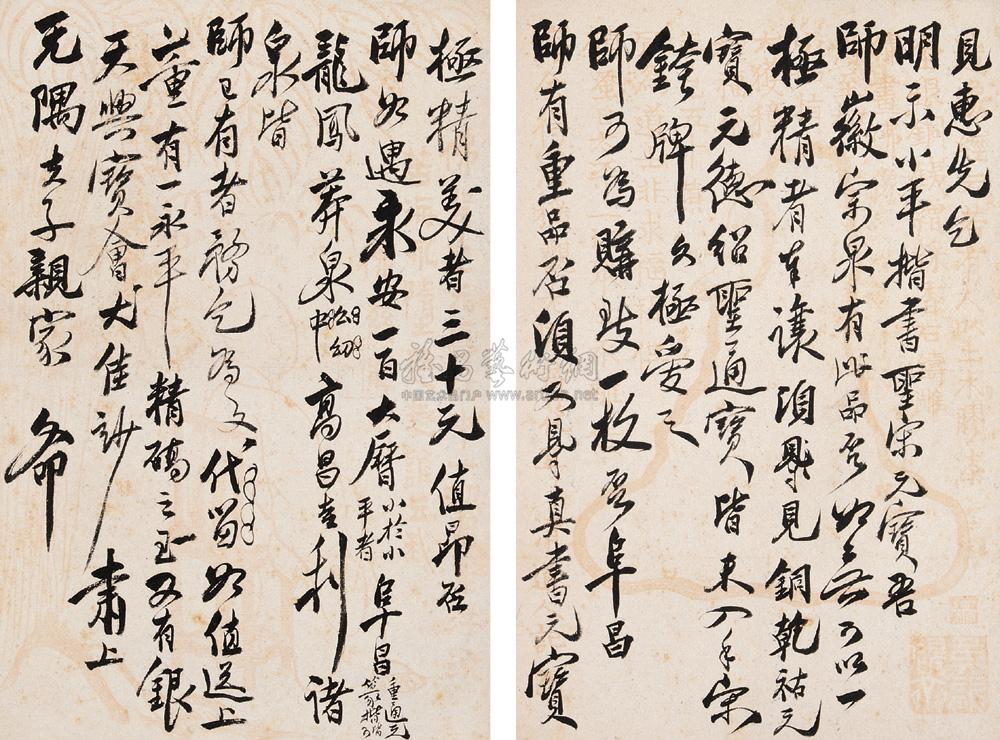 見惠先乞
明示小平楷書聖宋元寶吾
師徽宗泉有此品否如無可以一
極精者奉讓須最見銅乾祐元
寶元德紹聖通寶皆未入手宋
銙牌久極愛之
師可為購致一枚否阜昌
師有重品否須又真書元寶
極精美者三十元值昂否
師如遇永安一百大曆小於小平者阜昌重通元
龍鳳莽泉中高昌吉利諸
泉皆
師已有者務乞為文代留如值送上
六畫有一永平精碻之至又有銀
天興寶會大佳妙肅上
无隅夫子親家 弟